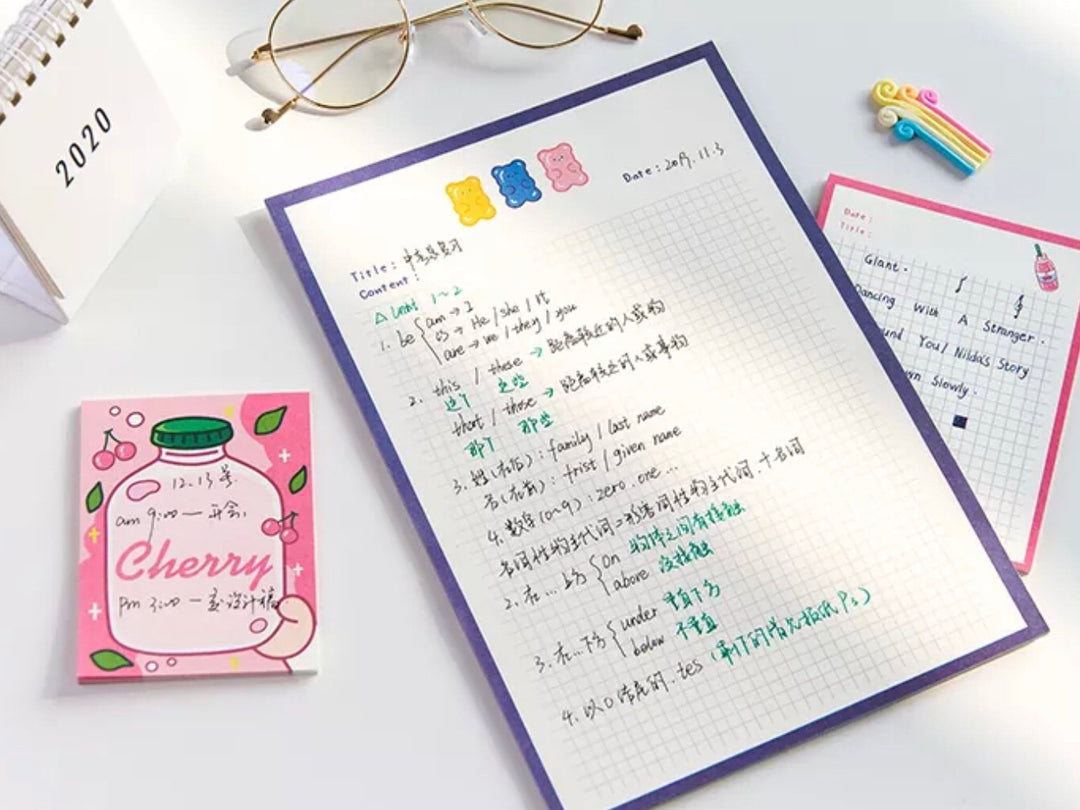 2020
Date: 2019.11.3
Title: 中考总复习
Content:
△ Unit 1~2
1. be { am → I
is → He / she / it
are → we / they / you
2. this / these → 距离较近的人或物
这个 这些
that / those → 距离较远的人或事物
那个 那些
3. 姓(在后): family / last name
名(在前): frist / given name
4. 数字(0~9): zero. one ...
名词性物主代词=形容词性物主代词.十名词
2. 在...上方 { on 物体之间有接触
above 没接触
3. 在...下方 { under 垂直下方
below 不垂直
4. 以o结尾的. tes (剩下的首先报纸 Ps)
Date:
Title:
Giant.
Dancing With A Stranger.
und You / Nilda's Story
n Slowly.
12.13号
am 9:00 — 开会
Cherry
pm 3:00 — 交设计稿